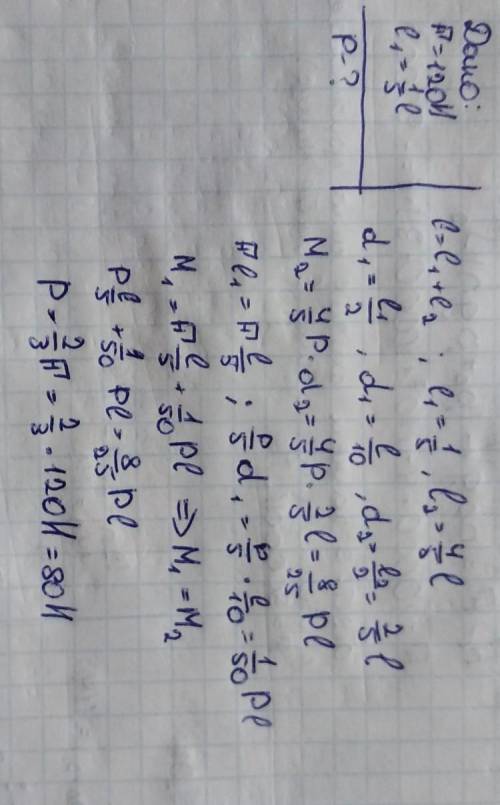 Дано:
F=120H
l₁=1/5 l
P-?
l=l₁+l₂ ; l₁=1/5, l₂=4/5 l
d₁=l₁/2 , d₁=l/10 , d₂=l₂/2=2/5 l
M₂=4/5 P·d₂=4/5 P·2/5 l=8/25 Pl
Fl₁=F l/5 ; P/5 d₁=P/5·l/10=1/50 Pl
M₁=F l/5+1/50 Pl => M₁=M₂
P l/5+1/50 Pl=8/25 Pl
P=2/3 F=2/3·120H=80H